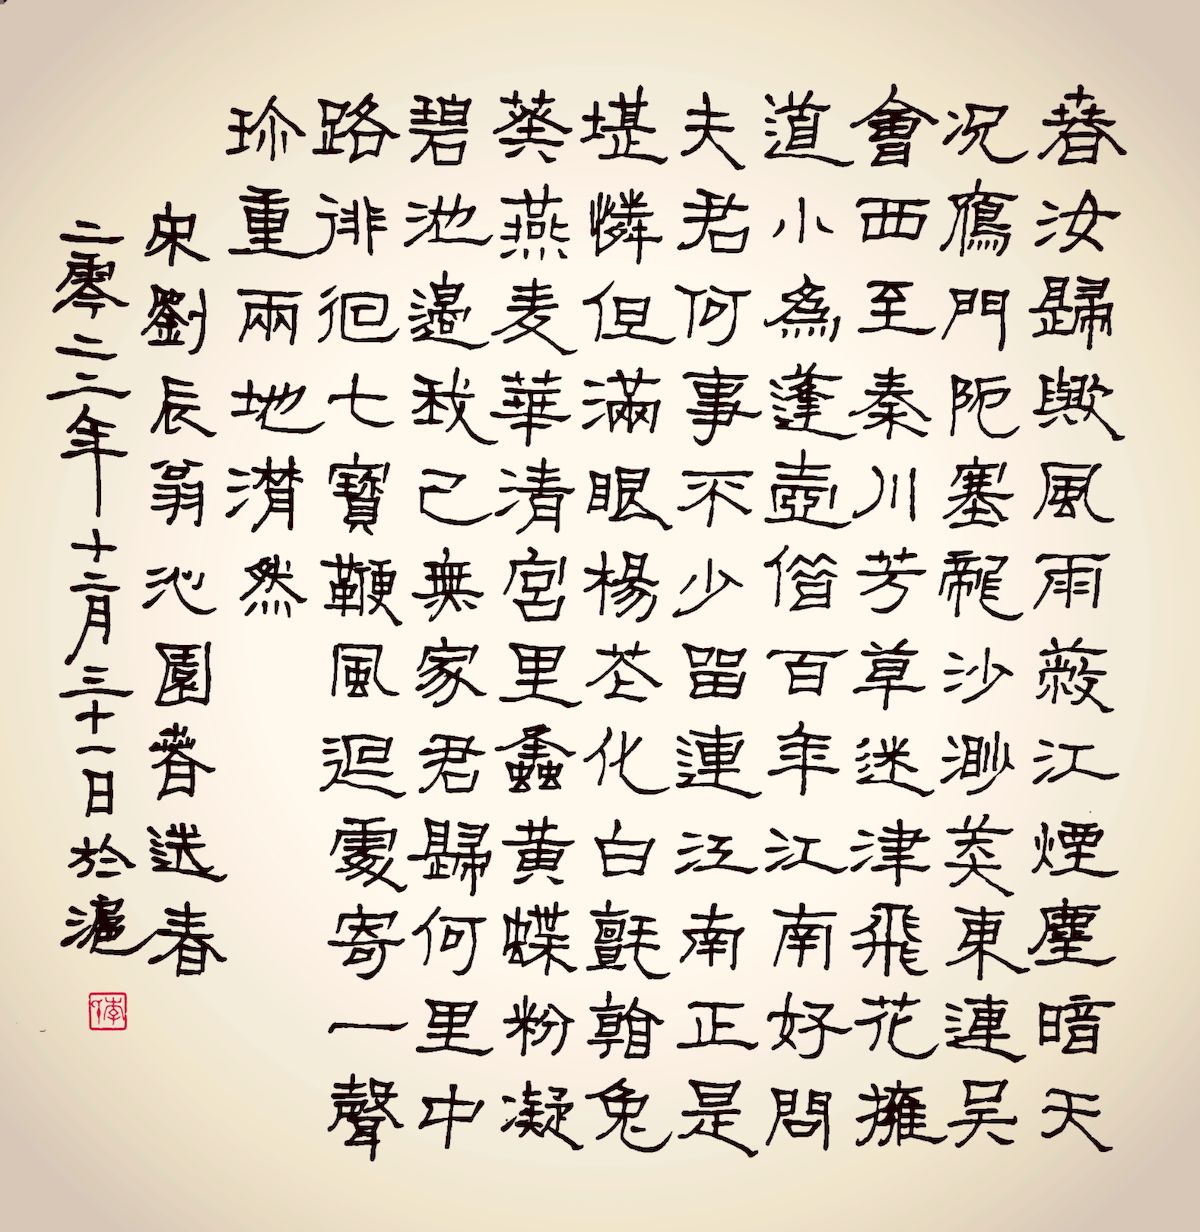 春汝歸歟風雨蔽江煙塵暗天
况鴈門阨塞龍沙渺莽東連吴
會西至秦川芳草迷津飛花擁
道小為蓬壺借百年江南好問
夫君何事不少留連江南正是
堪憐但滿眼楊花化白氈看兔
葵燕麦華清宫里蠭黄蝶粉凝
碧池邊我已無家君歸何里中
路徘徊七寶鞭風迴處寄一聲
珎重兩地潸然
宋劉辰翁沁園春送春
二零二二年十二月三十一日於滬